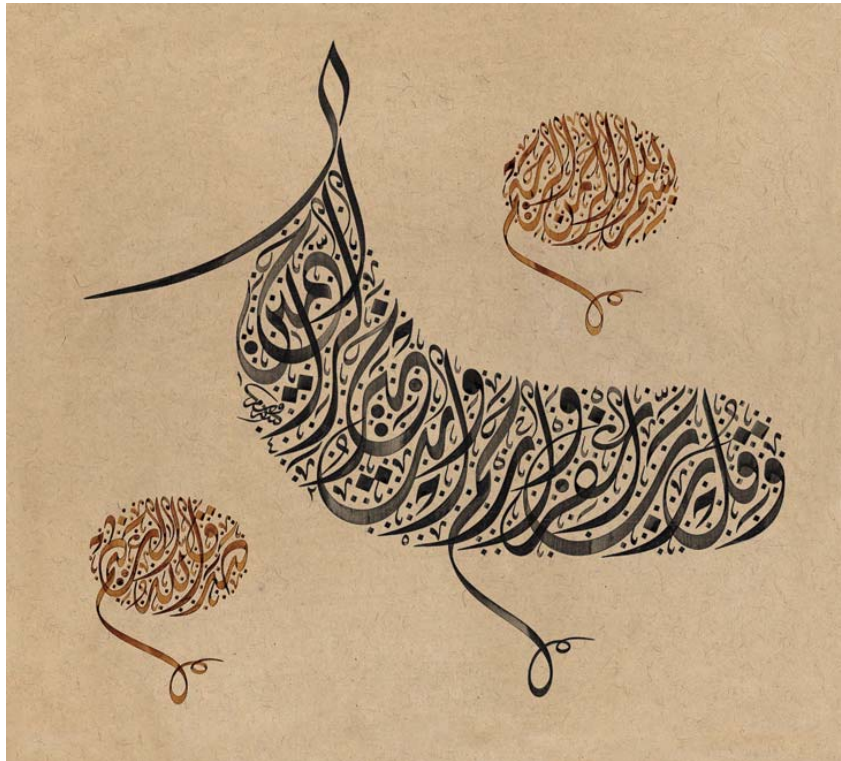 بسم الله الرحمن الرحيم
وقل رب اغفر وارحم وأنت خير الراحمين
صدق الله العظيم